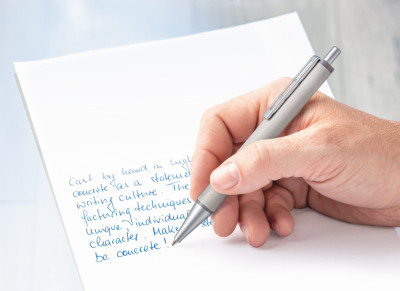 Cast by hand in high
concrete as a statem
writing culture. The
facturing techniques
unique, individual
character. Make a st
be concrete!